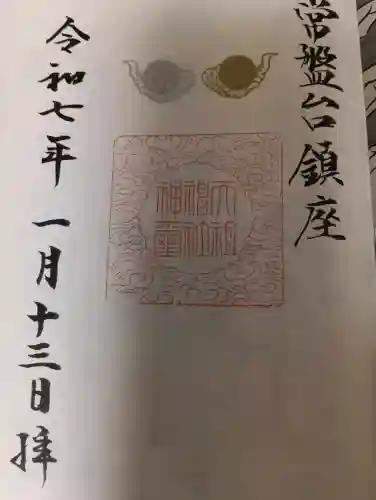 常盤台鎮座
天祖
神社
神璽
令和七年 一月十三日拝